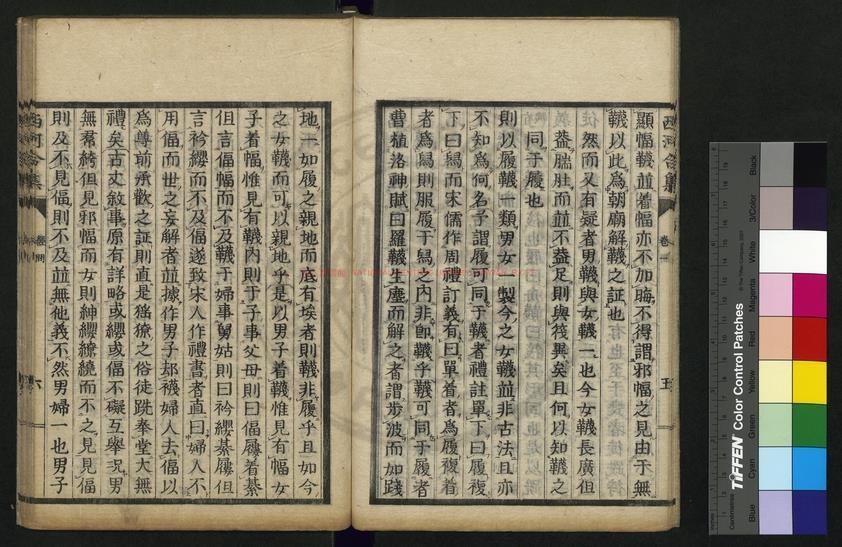 顯幅韈並着幅亦不加晦不得謂邪幅之見由于無
韈以此為朝廟解韈之証也
然而又有疑者男韈與女韈一也今女韈長廣但
葢腨肚而並不葢足則與筏異矣且何以知韈之
同于履也
則以履韈一類男女一製今之女韈並非古法且亦
不知為何名予謂履可同于韈者禮註單下曰履複
下曰舄而宋儒作周禮訂義有曰單着者為履複着
者為舄則服履于舄之內非卽韈乎韈可同于履者
曹植洛神賦曰羅韈生塵而解之者謂步波而如踐
西河合集
卷一
五
地一如履之親地而底有埃者則韈非履乎且如今
之女韈而可以親地乎是以男子着韈惟見有幅女
子着幅惟見有韈內則于子事父母則曰偪屨着綦
但言偪幅而不及韈于婦事舅姑則曰衿纓綦屨但
言衿纓而不及偪遂致宋人作禮書者直曰婦人不
用偪而世之妄解者並據作男子却襪婦人去偪以
為尊前承歡之証則直是猺獠之俗徒跣奉堂大無
禮矣古文敘事原有詳略或纓或偪不礙互舉况男
無帬綺但見邪幅而女則紳纓繚繞而不之見見偪
則及不見偪則不及並無他義不然男婦一也男子
西河合集
六
TIFFEN Color Control Patches
© The Tiffen Company, 2007
Inches
Centimetres
Blue
Cyan
Green
Yellow
Red
Magenta
White
3/Color
Black